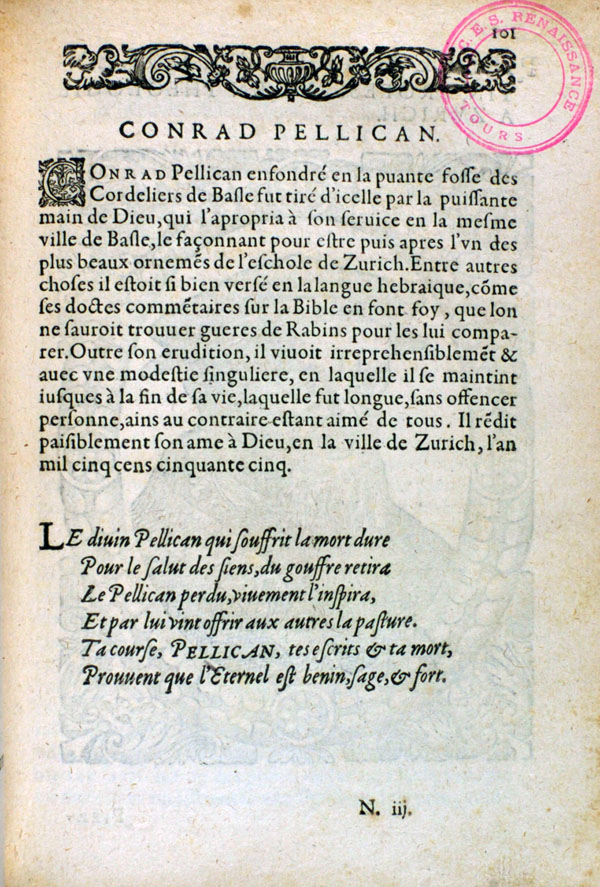 101
C.E.S. RENAISSANCE
TOURS
CONRAD PELLICAN.
CONRAD Pellican enfondré en la puante fosse des
Cordeliers de Basle fut tiré d'icelle par la puissante
main de Dieu, qui l'apropria à son seruice en la mesme
ville de Basle, le façonnant pour estre puis apres l'vn des
plus beaux ornemẽs de l'eschole de Zurich. Entre autres
choses il estoit si bien versé en la langue hebraique, cõme
ses doctes commẽtaires sur la Bible en font foy, que lon
ne sauroit trouuer gueres de Rabins pour les lui compa-
rer. Outre son erudition, il viuoit irreprehensiblemẽt &
auec vne modestie singuliere, en laquelle il se maintint
iusques à la fin de sa vie, laquelle fut longue, sans offencer
personne, ains au contraire estant aimé de tous. Il rẽdit
paisiblement son ame à Dieu, en la ville de Zurich, l'an
mil cinq cens cinquante cinq.
LE diuin Pellican qui souffrit la mort dure
Pour le salut des siens, du gouffre retira
Le Pellican perdu, viuement l'inspira,
Et par lui vint offrir aux autres la pasture.
Ta course, PELLICAN, tes escrits & ta mort,
Prouuent que l'Eternel est benin, sage, & fort.
N. iij.